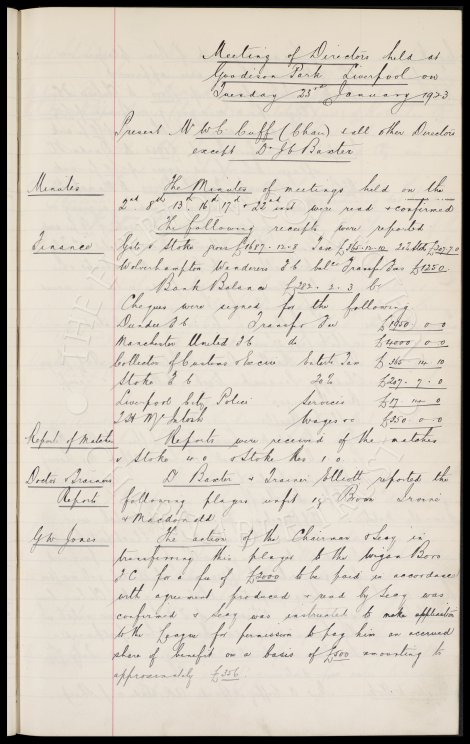 Meeting of Directors held at
Goodison Park Liverpool on
Tuesday 23rd January 1923
Present Mr W. C. Cuff (Chair) & all other Directors
except Dr J. C. Baxter
Minutes The Minutes of meetings held on the
2nd 8th 13th 16th 17th & 22nd inst were read & confirmed
The following receipts were reported
Finance Gate v Stoke gross £1687-12-8 Tax £365-12-10 20% Stoke £207.7.0
Wolverhampton Wanderers F C balce Transfer Fee £1250.
Bank Balance 2.3
Cheques were signed for the following
Dundee F C Transfer Fee £1950 0-0
Manchester United F C do £4000 0-0
Collector of Customs & Excise Enterts Tax £365 14 10
Stoke F C 20% £207.7.0
Liverpool City Police Services £17.14.0
T. H. McIntosh Wages &c £250.0-0
Report of Matches Reports were received of the matches
v Stoke 4.0 v Stoke Res 1.0
Doctor & Trainers Dr Baxter & Trainer Elliott reported the
Reports following players unfit Brown Irvine
& Macdonald
G W Jones The action of the Chairman & Secy in
transferring this player to the Wigan Boro
F C for a fee of £2000 to be paid in accordance
with agreement produced & read by Secy was
confirmed & Secy was instructed to make application
to the League for permission to pay him an accrued
share of benefit on a basis of £500 amounting to
approximately £356.